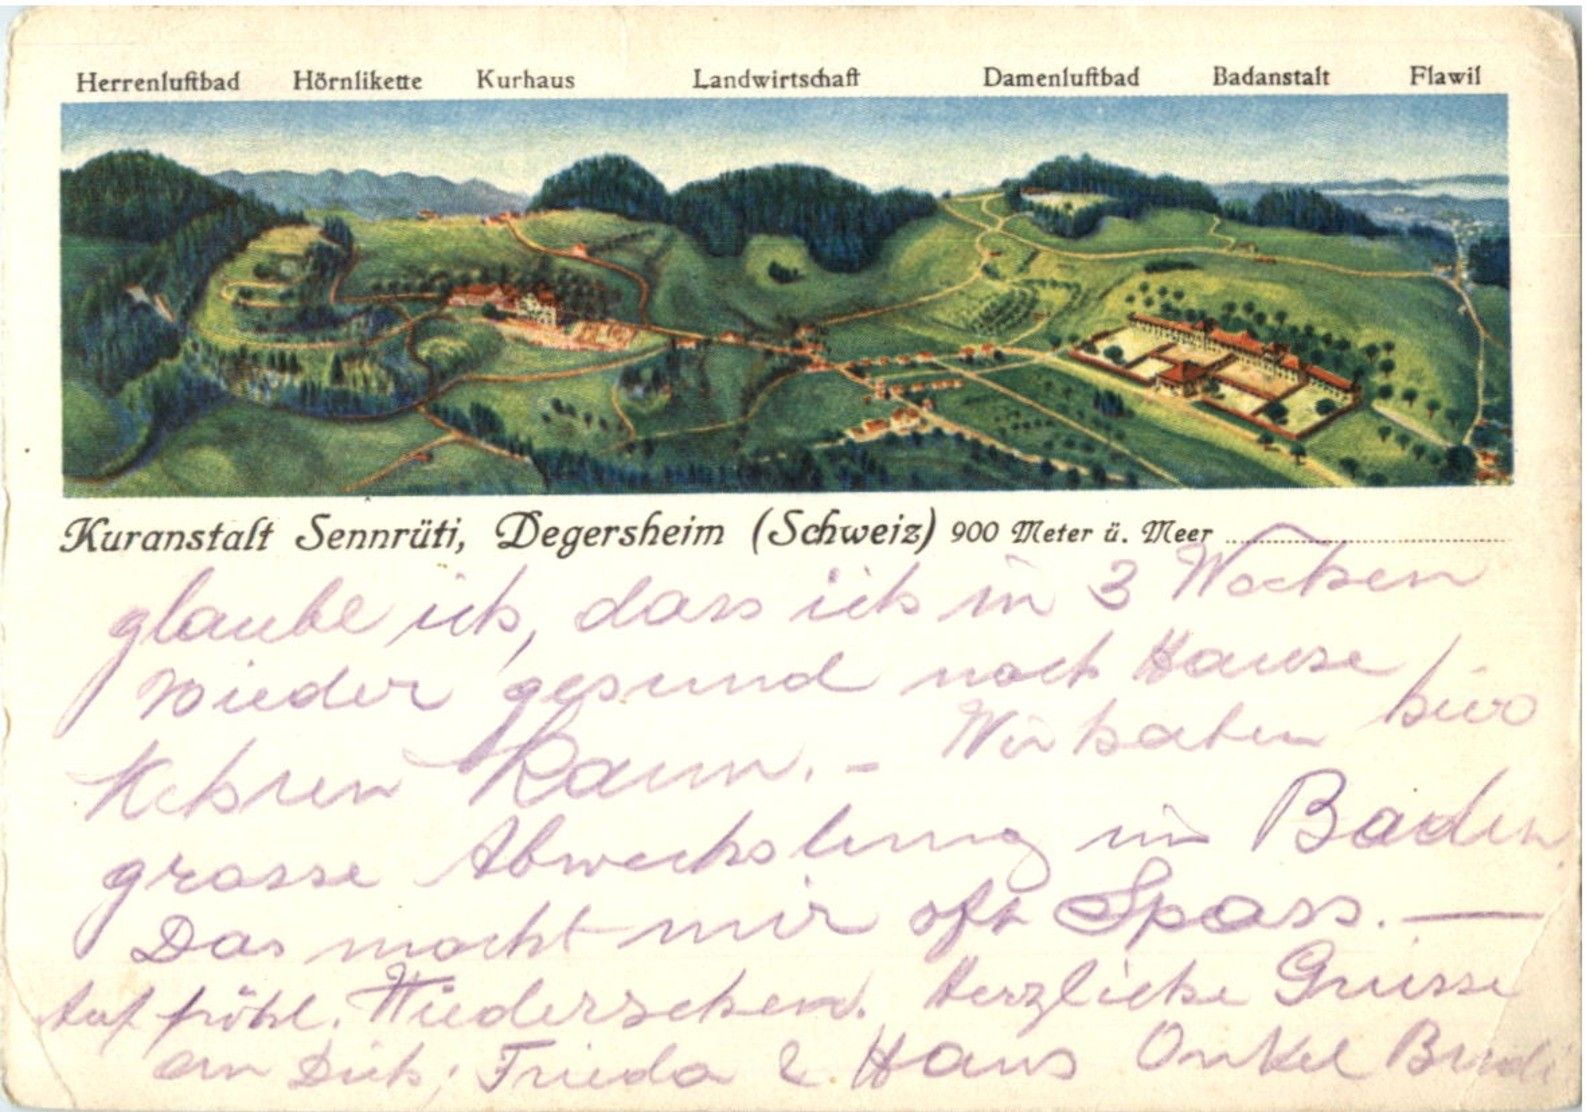 Herrenluftbad Hörnlikette Kurhaus Landwirtschaft Damenluftbad Badanstalt Flawil
Kuranstalt Sennrüti, Degersheim (Schweiz) 900 Meter ü. Meer
glaube ich, dass ich in 3 Wochen
wieder gesund nach Hause
kehren kann. – Wir haben hier
grosse Abwechslung im Baden.
Das macht mir oft Spass. —
Auf fröhl. Wiedersehen. Herzliche Grüsse
an Dich, Frieda & Hans Onkel